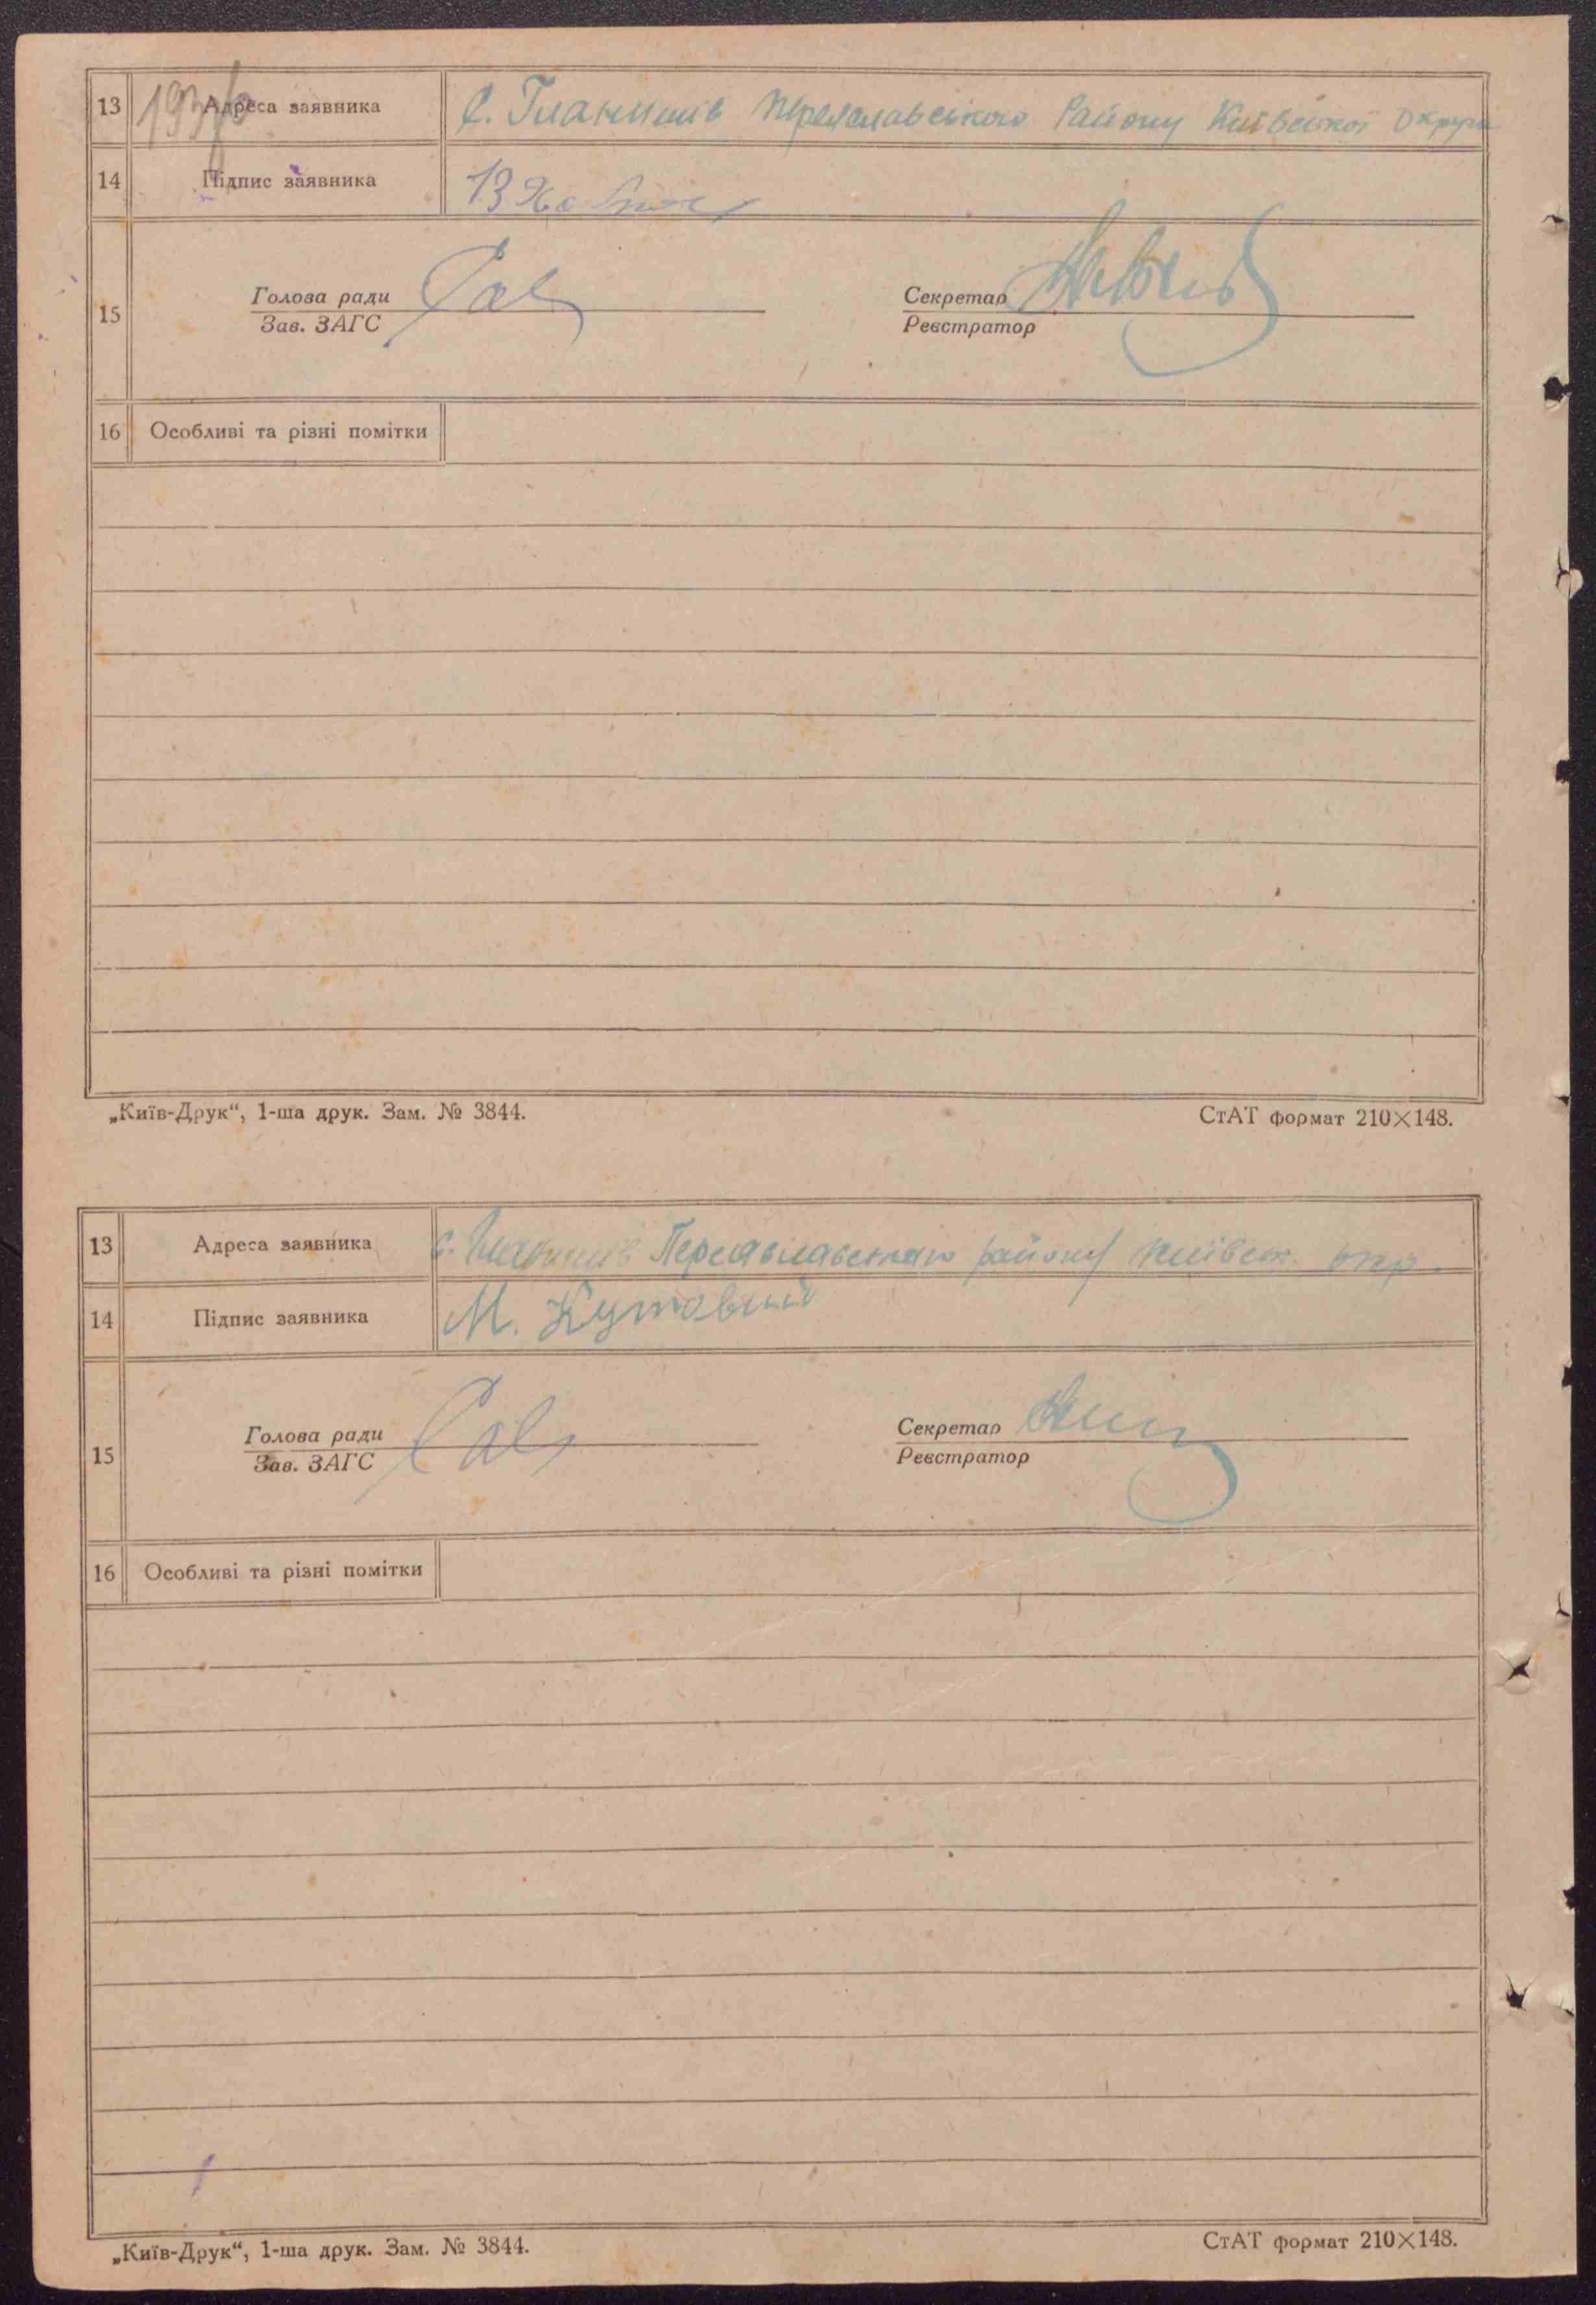 13 Адреса заявника С. Гланишів Переяславського Району Київської Округи
14 Підпис заявника
15 Голова ради Секретар
Зав. ЗАГС Реєстратор
16 Особливі та різні помітки
„Київ-Друк“, 1-ша друк. Зам. № 3844. СтАТ формат 210×148.
13 Адреса заявника с. Гланишів Переяславського району Київськ. окр.
14 Підпис заявника М. Кутовий
15 Голова ради Секретар
Зав. ЗАГС Реєстратор
16 Особливі та різні помітки
„Київ-Друк“, 1-ша друк. Зам. № 3844. СтАТ формат 210×148.